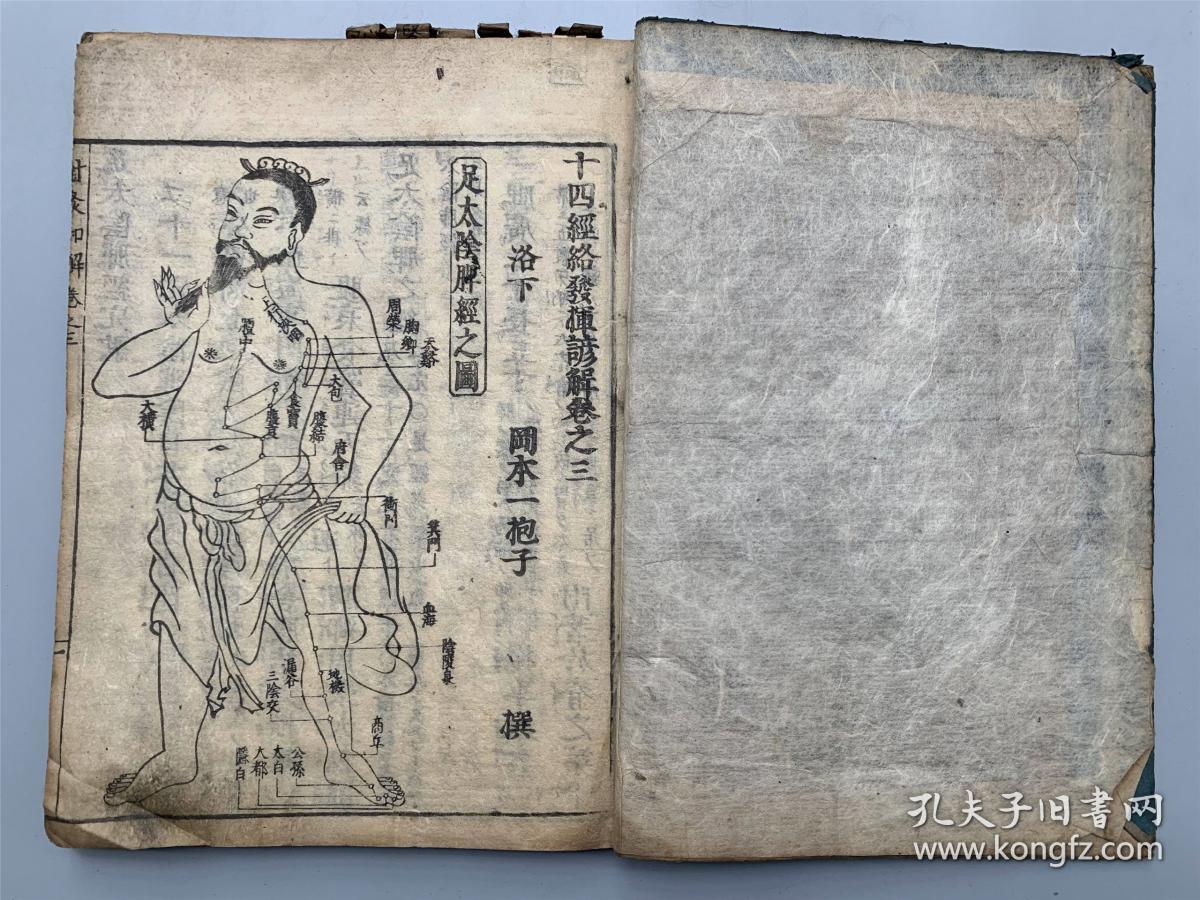 十四經絡發揮諺解卷之三
洛下 岡本一抱子 撰
足太陰脾經之圖
周榮
胸鄉
天谿
大包
食竇
腹哀
腹結
大橫
府舍
衝門
箕門
血海
陰陵泉
地機
漏谷
三陰交
商丘
公孫
太白
大都
隱白
孔夫子旧书网
www.kongfz.com